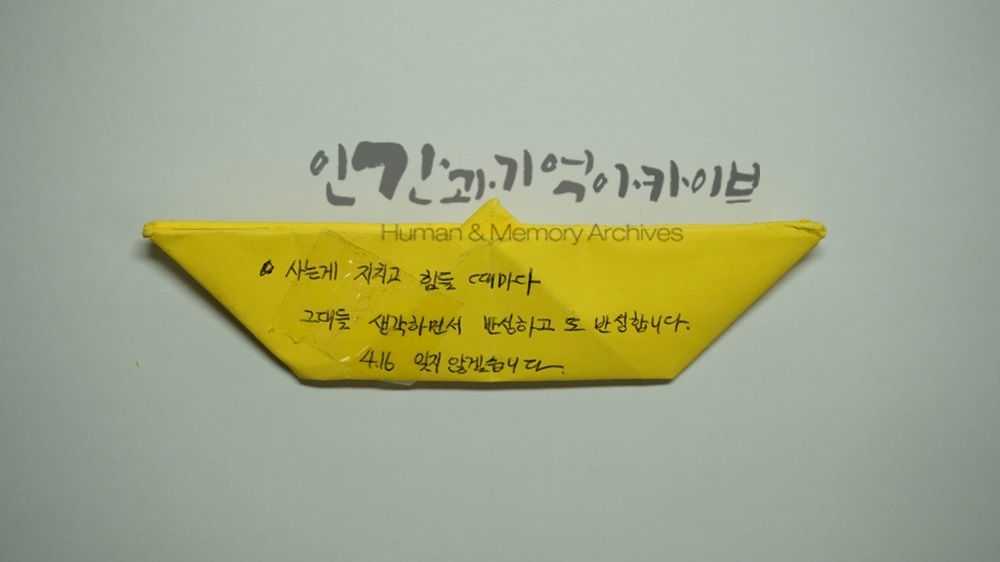 인간과기억아카이브
Human & Memory Archives
사는게 지치고 힘들 때마다
그대들 생각하면서 반성하고 또 반성합니다.
4.16 잊지 않겠습니다.